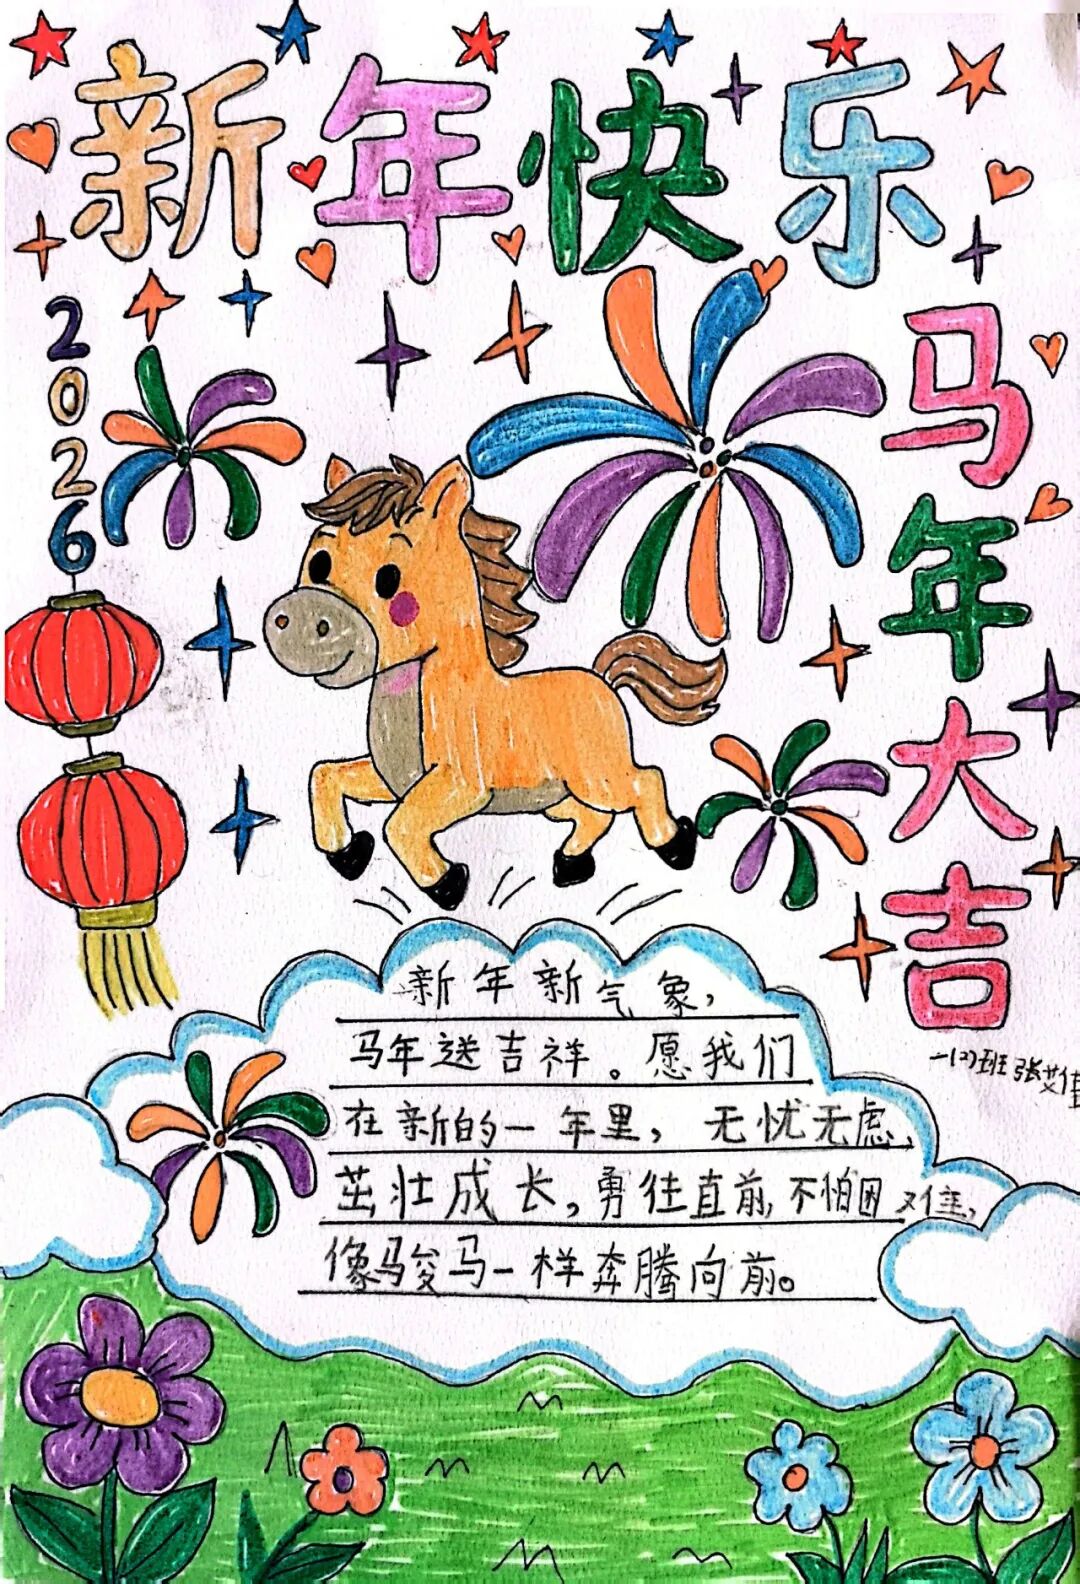 新年快乐
2026
马年大吉
一(2)班 张艾佳
新年新气象，
马年送吉祥。愿我们
在新的一年里，无忧无虑、
茁壮成长，勇往直前，不怕困难，
像骏马一样奔腾向前。